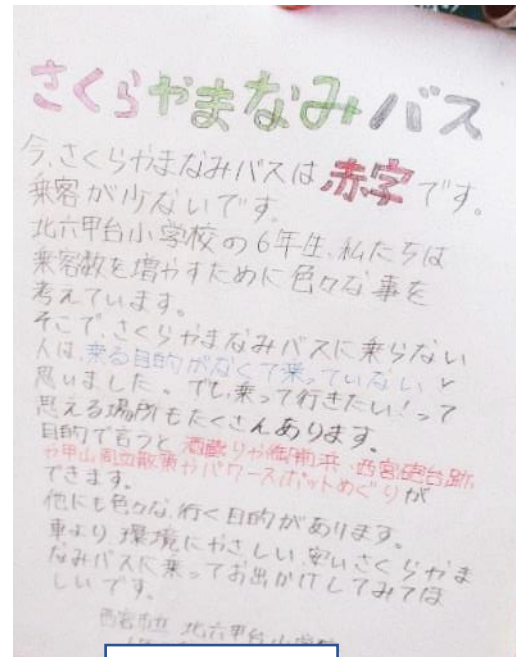 さくらやまなみバス
今、さくらやまなみバスは赤字です。
乗客が少ないです。
北六甲台小学校の6年生、私たちは
乗客数を増やすために色々な事を
考えています。
そこで、さくらやまなみバスに乗らない
人は、来る目的がなくて乗っていないと
思いました。でも、乗って行きたい!って
思える場所もたくさんあります。
目的で言うと酒蔵りや御前浜・西宮砲台跡、
や甲山周辺散策やパワースポットめぐりが
できます。
他にも色々な、行く目的があります。
車より、環境にやさしい、安いさくらやま
なみバスに乗ってお出かけしてみてほ
しいです。
西宮市立 北六甲台小学校